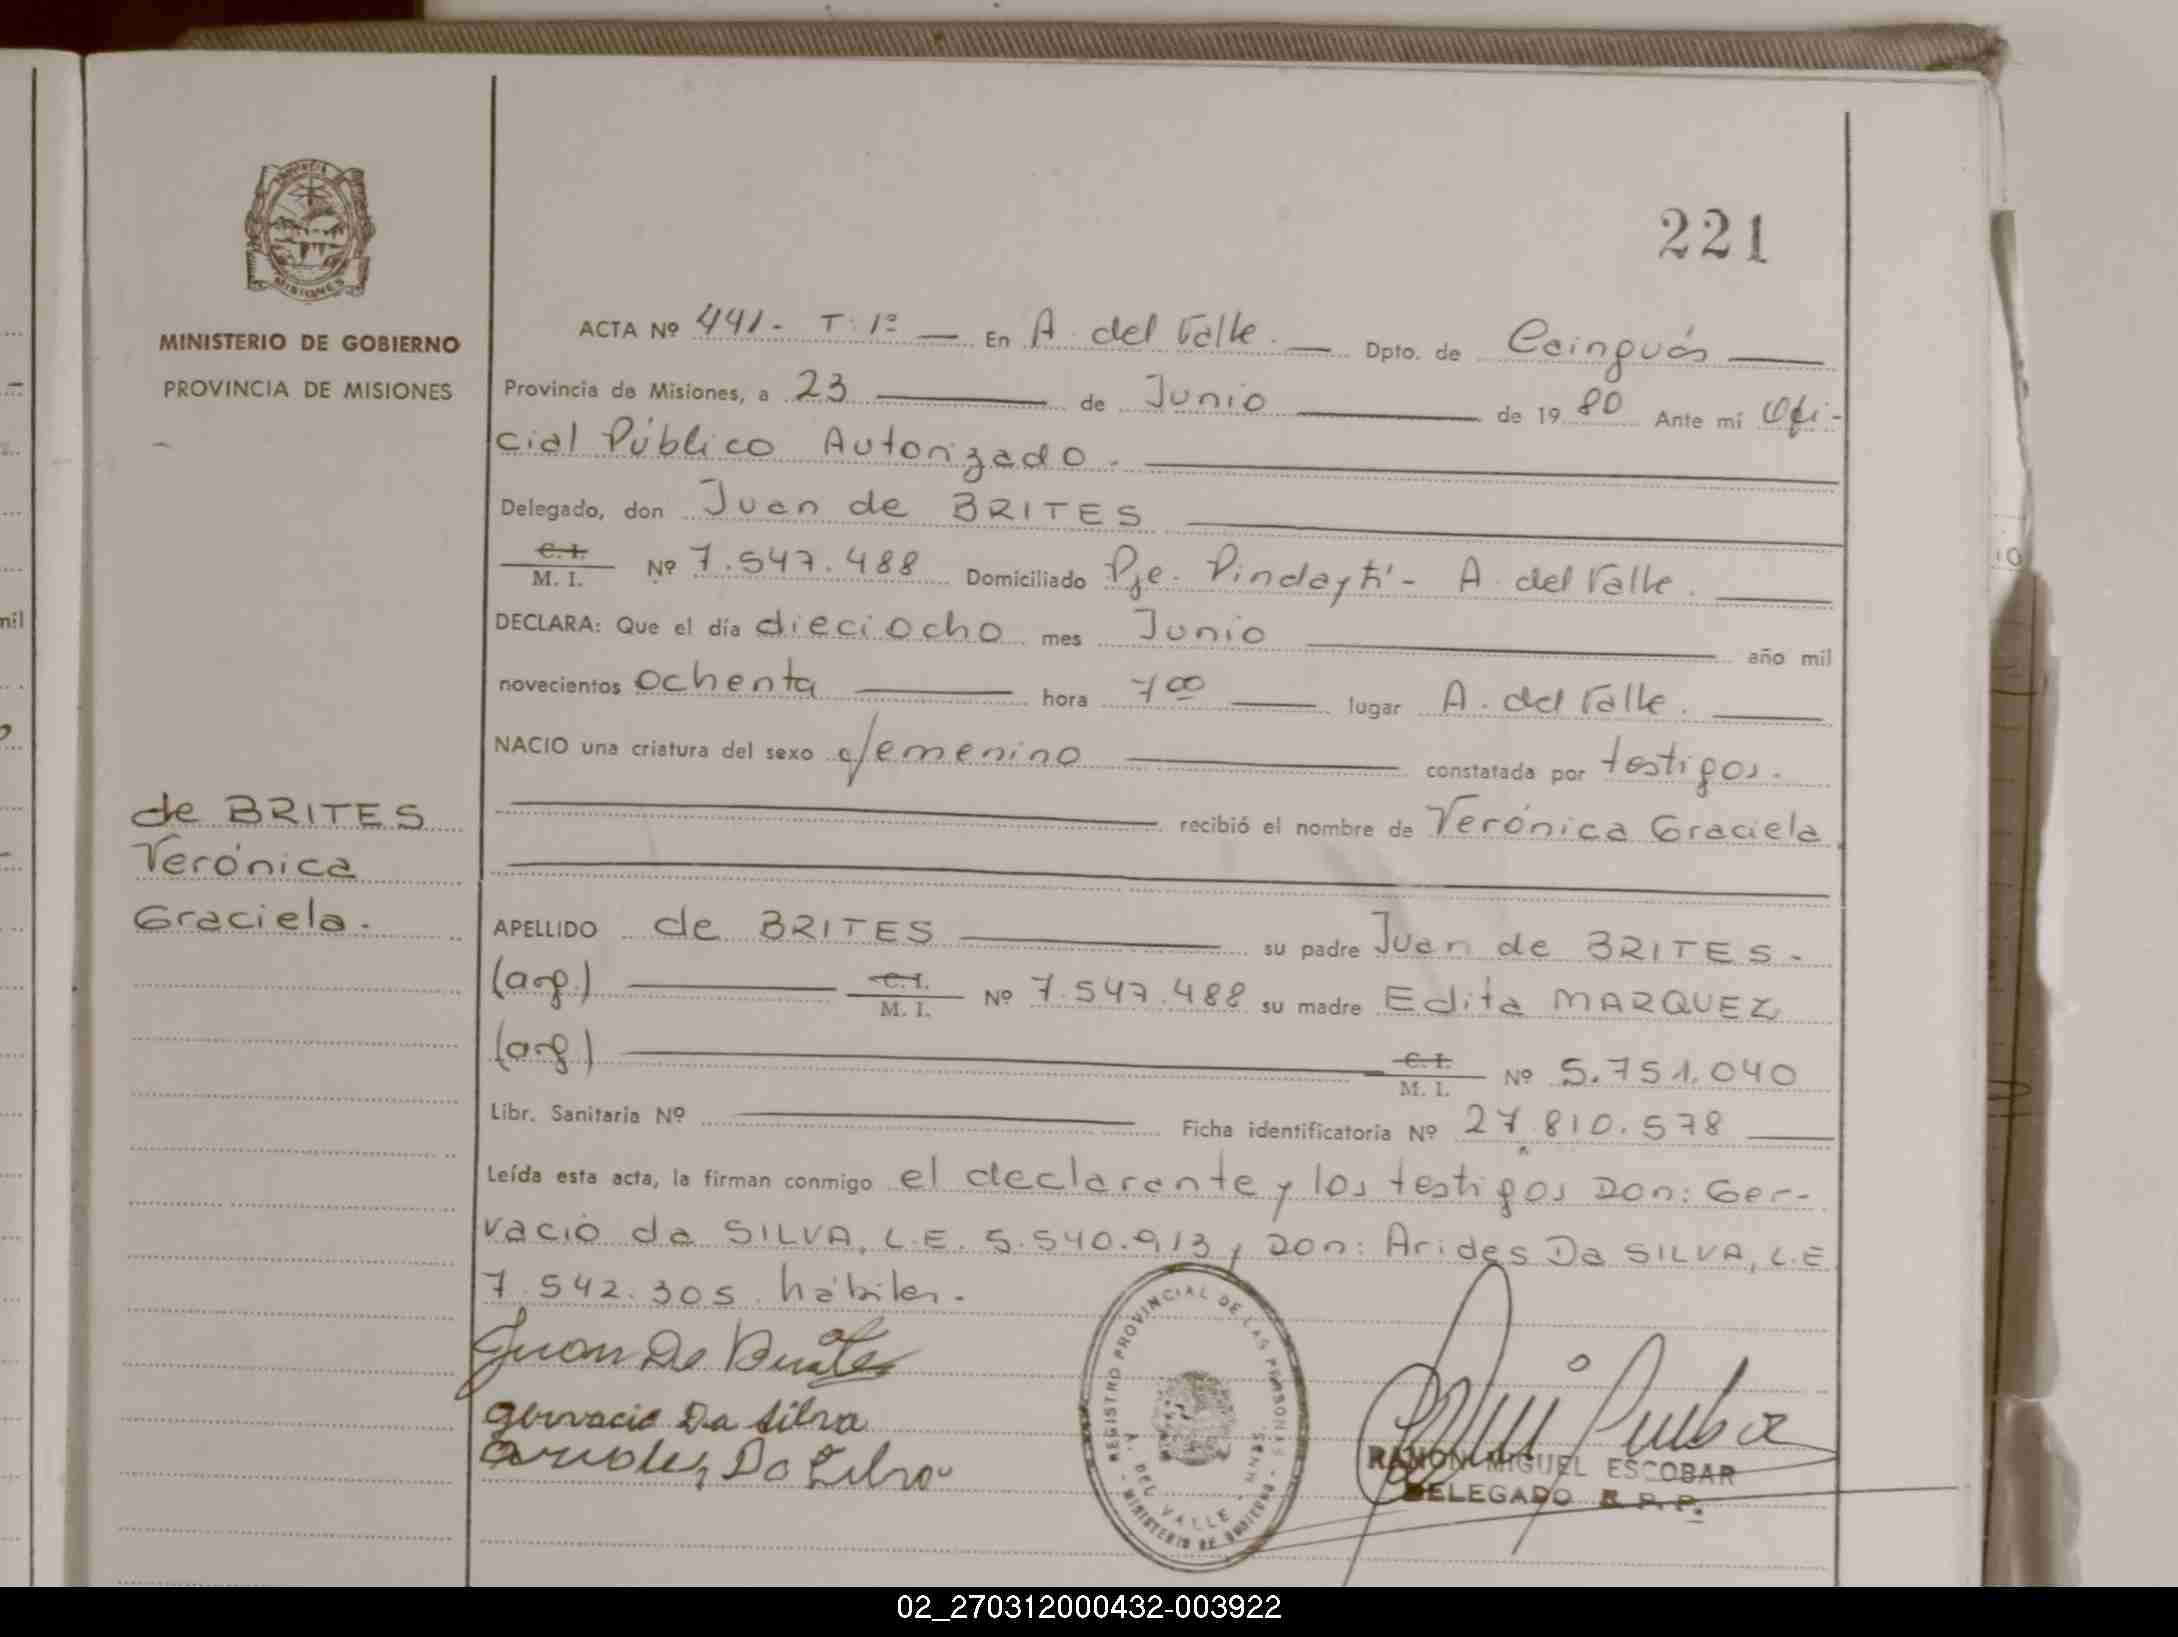 221
MINISTERIO DE GOBIERNO
PROVINCIA DE MISIONES
ACTA Nº 441- T: 1º En A. del Valle. Dpto. de Cainguás
Provincia de Misiones, a 23 de Junio de 1980 Ante mí Ofi-
cial Público Autorizado.
Delegado, don Juan de BRITES
C. I. / M. I. Nº 7.547.488 Domiciliado Pje. Pindaytí- A. del Valle.
DECLARA: Que el día dieciocho mes Junio año mil
novecientos ochenta hora 7 00 lugar A. del Valle.
NACIO una criatura del sexo femenino constatada por testigos.
recibió el nombre de Verónica Graciela
de BRITES
Verónica
Graciela.
APELLIDO de BRITES su padre Juan de BRITES.
(arg.) C. I. / M. I. Nº 7.547.488 su madre Edita MARQUEZ
(arg) C. I. / M. I. Nº 5.751.040
Libr. Sanitaria Nº Ficha identificatoria Nº 27.810.578
Leída esta acta, la firman conmigo el declarante y los testigos Don: Ger-
vacio da SILVA, L.E. 5.540.913 y Don: Arides Da SILVA, L.E
7.542.305. hábiles.
Juan De Brites
Gervacio Da Silva
Arides Da Silva
REGISTRO PROVINCIAL DE LAS PERSONAS
A. DEL VALLE - MNES.
MINISTERIO DE GOBIERNO
RAMON MIGUEL ESCOBAR
DELEGADO R. P. P.
MISIONES
mil
02_270312000432-003922